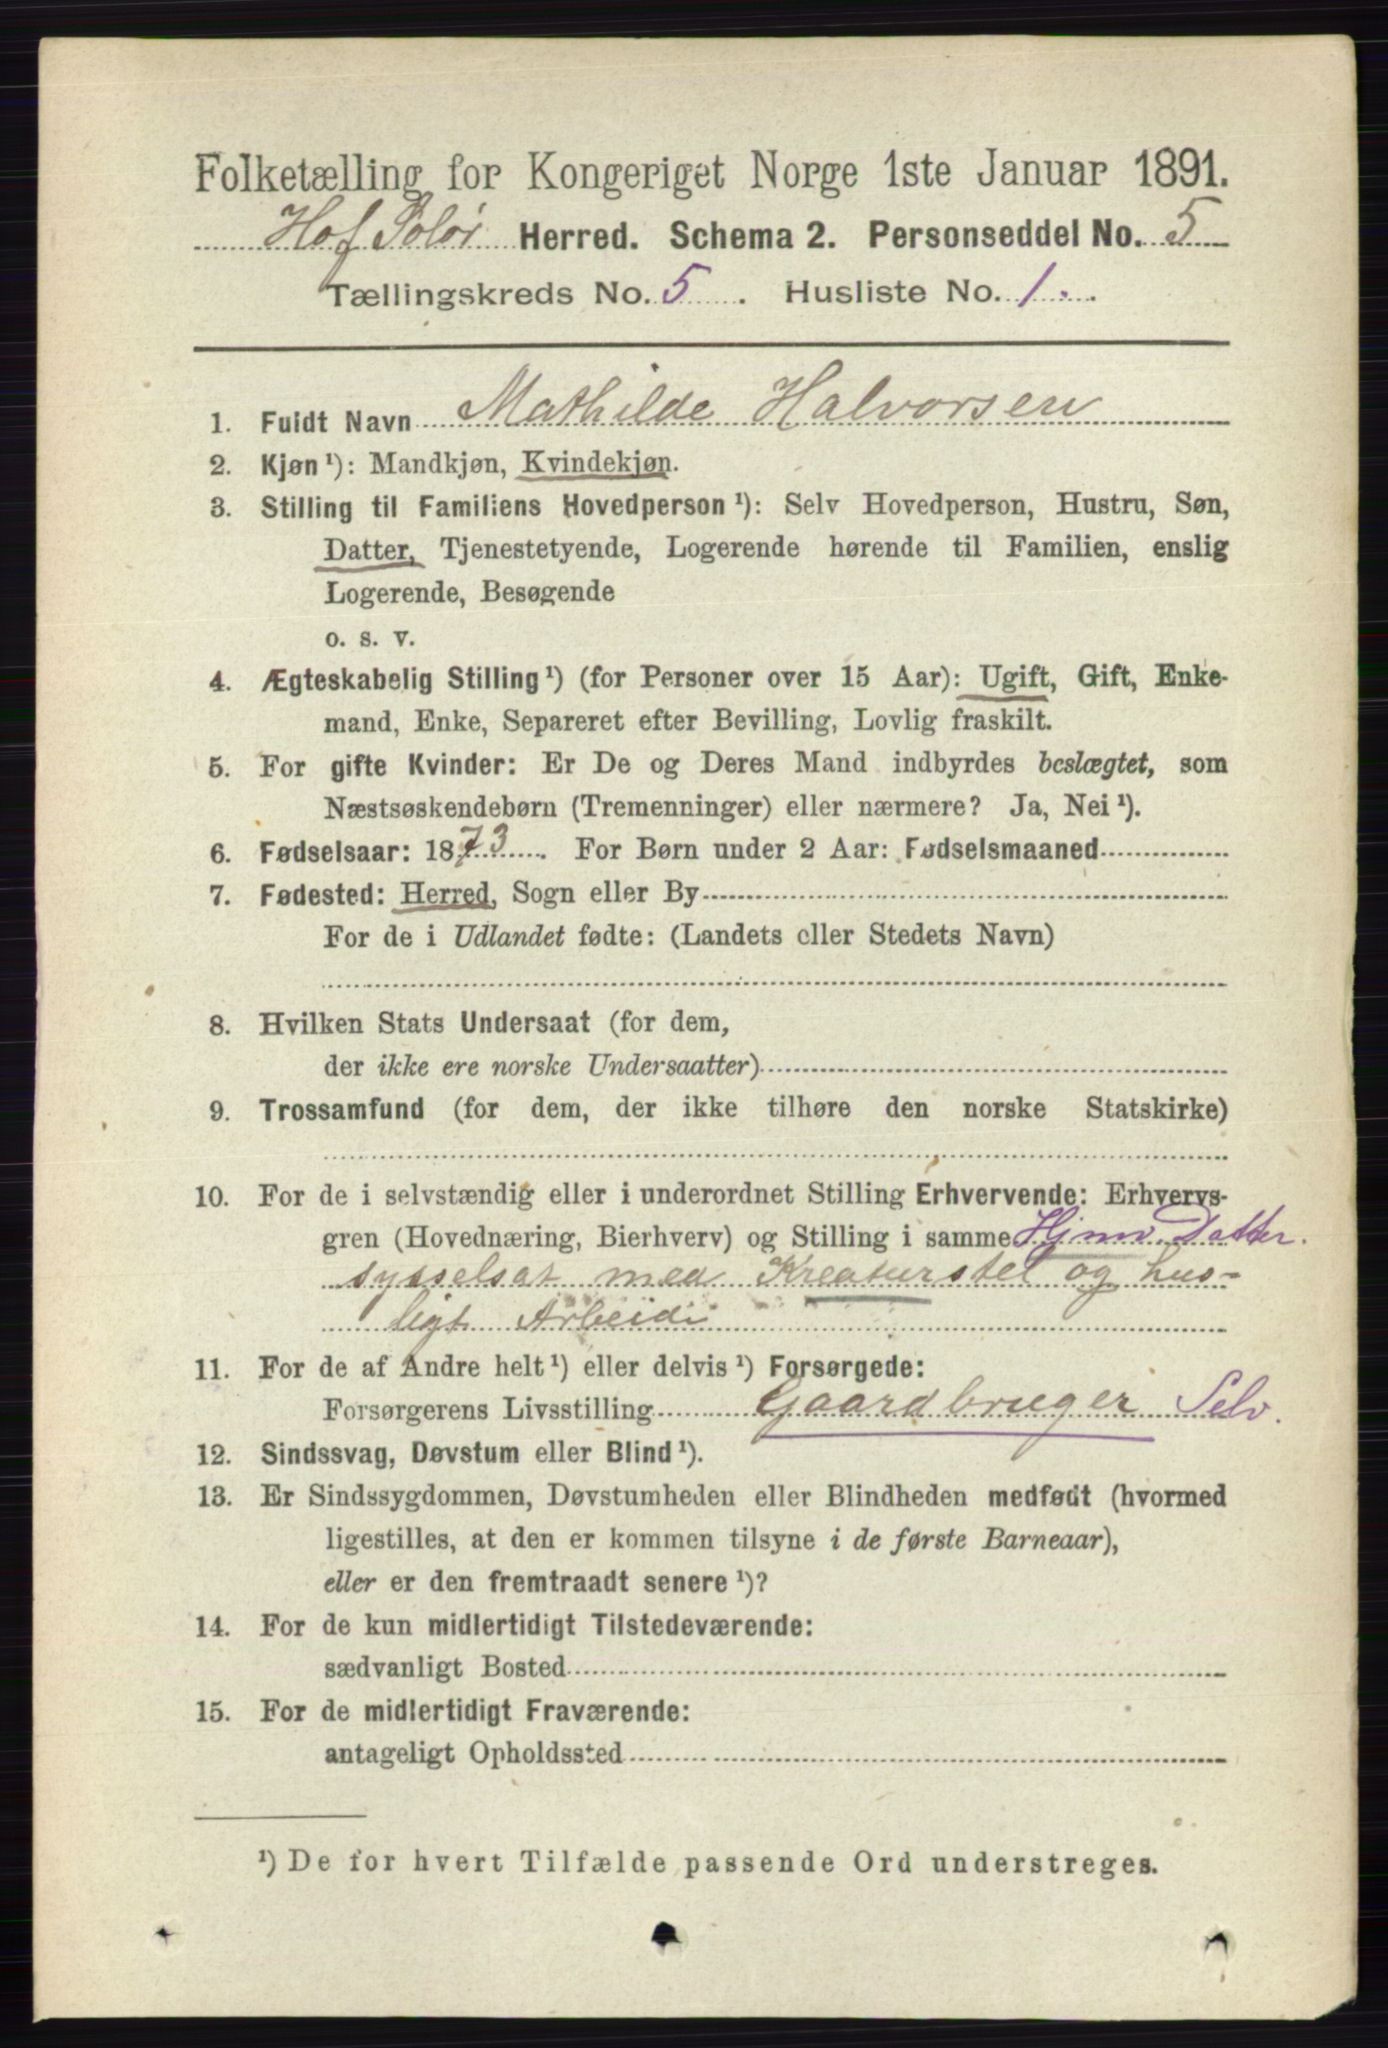 Folketælling for Kongeriget Norge 1ste Januar 1891.
Hof Solør Herred. Schema 2. Personseddel No. 5
Tællingskreds No. 5. Husliste No. 1.
1. Fuldt Navn Mathilde Halvorsen
2. Kjøn ¹): Mandkjøn, Kvindekjøn.
3. Stilling til Familiens Hovedperson ¹): Selv Hovedperson, Hustru, Søn,
Datter, Tjenestetyende, Logerende hørende til Familien, enslig
Logerende, Besøgende
o. s. v.
4. Ægteskabelig Stilling ¹) (for Personer over 15 Aar): Ugift, Gift, Enke-
mand, Enke, Separeret efter Bevilling, Lovlig fraskilt.
5. For gifte Kvinder: Er De og Deres Mand indbyrdes beslægtet, som
Næstsøskendebørn (Tremenninger) eller nærmere? Ja, Nei ¹).
6. Fødselsaar: 1873. For Børn under 2 Aar: Fødselsmaaned
7. Fødested: Herred, Sogn eller By
For de i Udlandet fødte: (Landets eller Stedets Navn)
8. Hvilken Stats Undersaat (for dem,
der ikke ere norske Undersaatter)
9. Trossamfund (for dem, der ikke tilhøre den norske Statskirke)
10. For de i selvstændig eller i underordnet Stilling Erhvervende: Erhvervs-
gren (Hovednæring, Bierhverv) og Stilling i samme Hjmv. Datter.
sysselsat med Kreaturstel og hus-
ligt Arbeide
11. For de af Andre helt ¹) eller delvis ¹) Forsørgede:
Forsørgerens Livsstilling Gaardbruger Selv.
12. Sindssvag, Døvstum eller Blind ¹).
13. Er Sindssygdommen, Døvstumheden eller Blindheden medfødt (hvormed
ligestilles, at den er kommen tilsyne i de første Barneaar),
eller er den fremtraadt senere ¹)?
14. For de kun midlertidigt Tilstedeværende:
sædvanligt Bosted
15. For de midlertidigt Fraværende:
antageligt Opholdssted
¹) De for hvert Tilfælde passende Ord understreges.